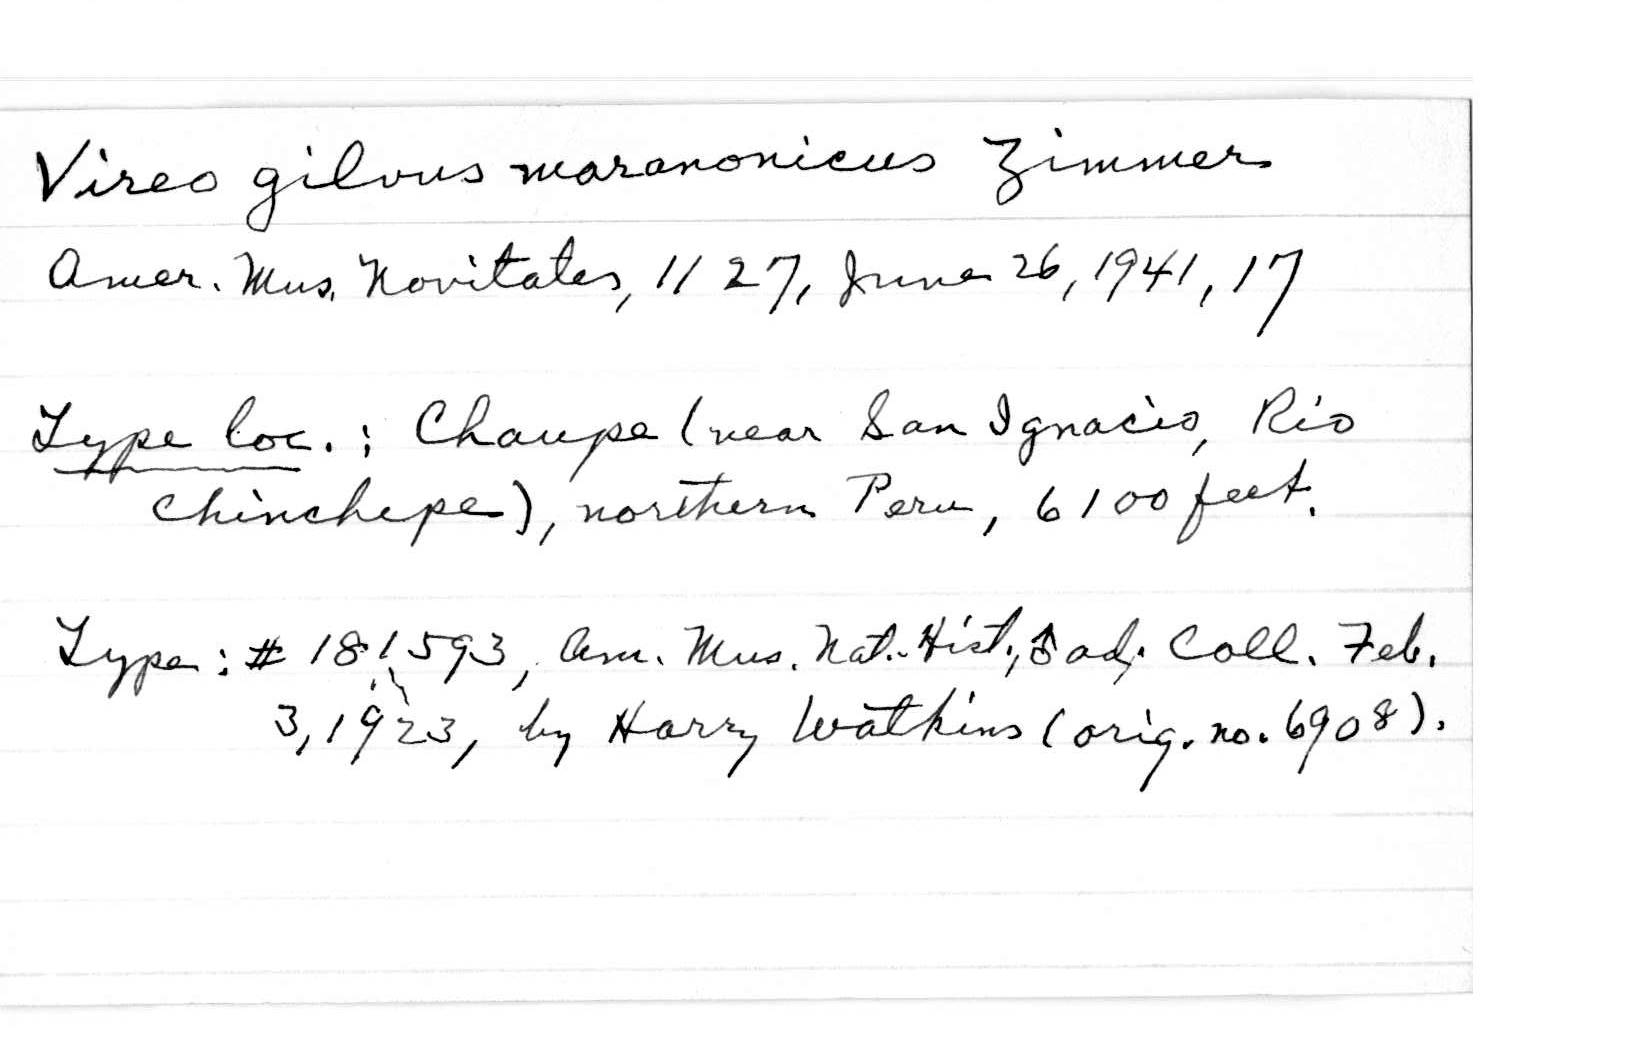 Vireo gilvus maranonicus Zimmer
Amer. Mus. Novitates, 1127, June 26, 1941, 17
Type loc.: Chaupe (near San Ignacio, Rio
Chinchepe), northern Peru, 6100 feet.
Type: # 181593, Am. Mus. Nat. Hist., ♂ ad; Coll. Feb.
3, 1923, by Harry Watkins (orig. no. 6908).